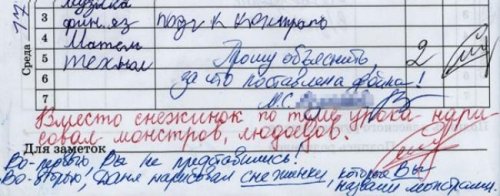 17
Среда
3 фин. яз подг к контрол
4 Матем
5 технол
Прошу объяснить, 2
6 за что поставлена "двойка"!
7 М.С.
Вместо снежинок по теме урока нари
совал монстров, людоедов.
Для заметок
Во-первых Вы не представились!
Во-вторых, Даня нарисовал снежинки, которые Вы
назвали монстрами.